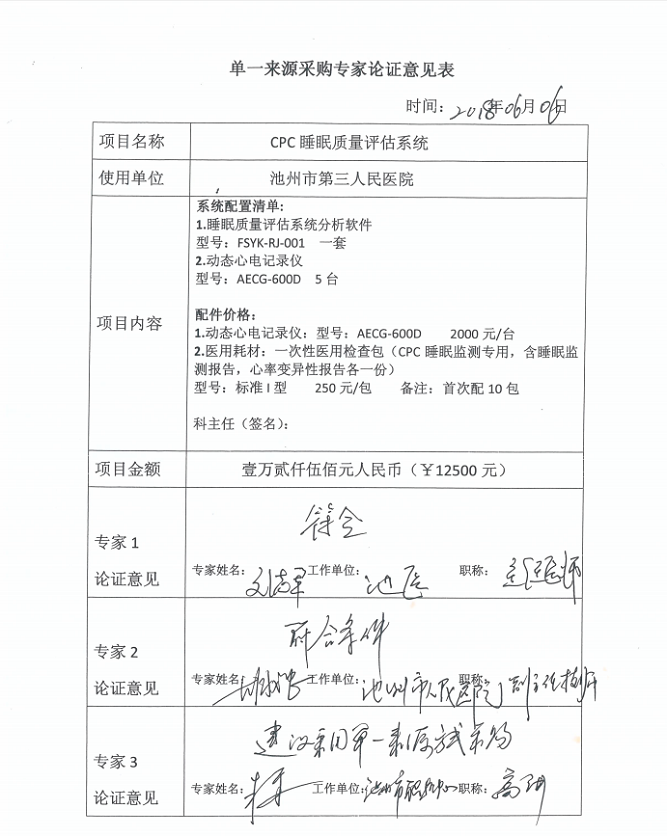 单一来源采购专家论证意见表
时间：2018年06月06日
项目名称 CPC 睡眠质量评估系统
使用单位 池州市第三人民医院
项目内容
系统配置清单:
1.睡眠质量评估系统分析软件
型号：FSYK-RJ-001 一套
2.动态心电记录仪
型号：AECG-600D 5 台
配件价格：
1.动态心电记录仪：型号：AECG-600D 2000 元/台
2.医用耗材：一次性医用检查包（CPC 睡眠监测专用，含睡眠监
测报告，心率变异性报告各一份）
型号：标准 I 型 250 元/包 备注：首次配 10 包
科主任（签名）：
项目金额 壹万贰仟伍佰元人民币（￥12500 元）
专家 1
论证意见
符合
专家姓名： 工作单位： 池医 职称： 主任医师
专家 2
论证意见
符合条件
专家姓名： 工作单位： 池州市人民医院 职称：
专家 3
论证意见
建议采用单一来源方式采购
专家姓名： 工作单位： 职称：